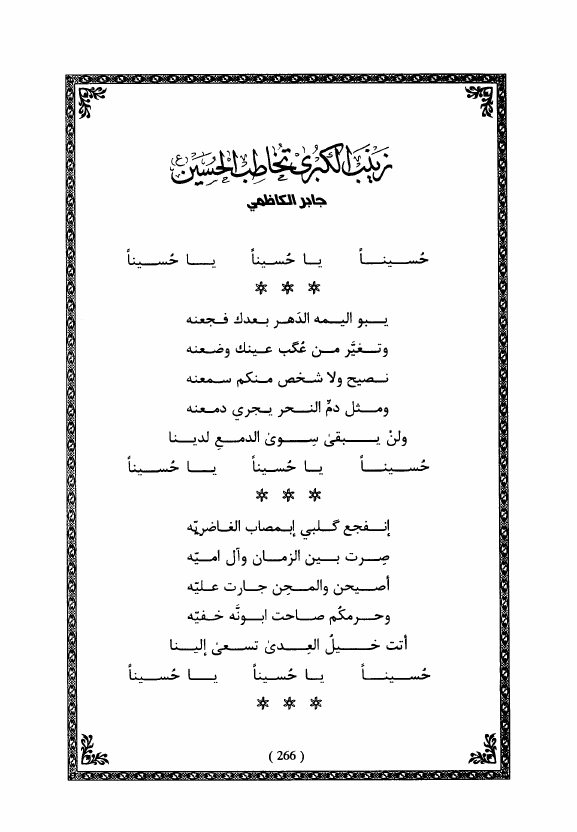 زَينَب الكُبرىٰ تُخاطِب الحُسَين (ع)
جابر الكاظمي
حُسـيـنـاً يـا حُسـيـناً يـا حُسـيـناً
* * *
يـبو اليـمه الدَهـر بـعدك فـجعنه
وتـغيَّر مـن عُگب عـينك وضـعنه
نـصيح ولا شـخص مـنكم سـمعنه
ومـثل دمِّ النـحر يـجري دمـعنه
ولنْ يـبقىٰ سِـوىٰ الدمـعِ لديـنا
حُسـيـنـاً يـا حُسـيـناً يـا حُسـيـناً
* * *
إنـفجع گـلبي إبـمصاب الغـاضريّه
صِـرت بـين الزمـان وآل امـيّه
أصـيحن والمـحِن جـارت عـليّه
وحـرمكُم صـاحت ابـونَّه خـفيّه
أتت خـيلُ العِـدىٰ تسـعىٰ إليـنا
حُسـيـنـاً يـا حُسـيـناً يـا حُسـيـناً
* * *
( 266 )